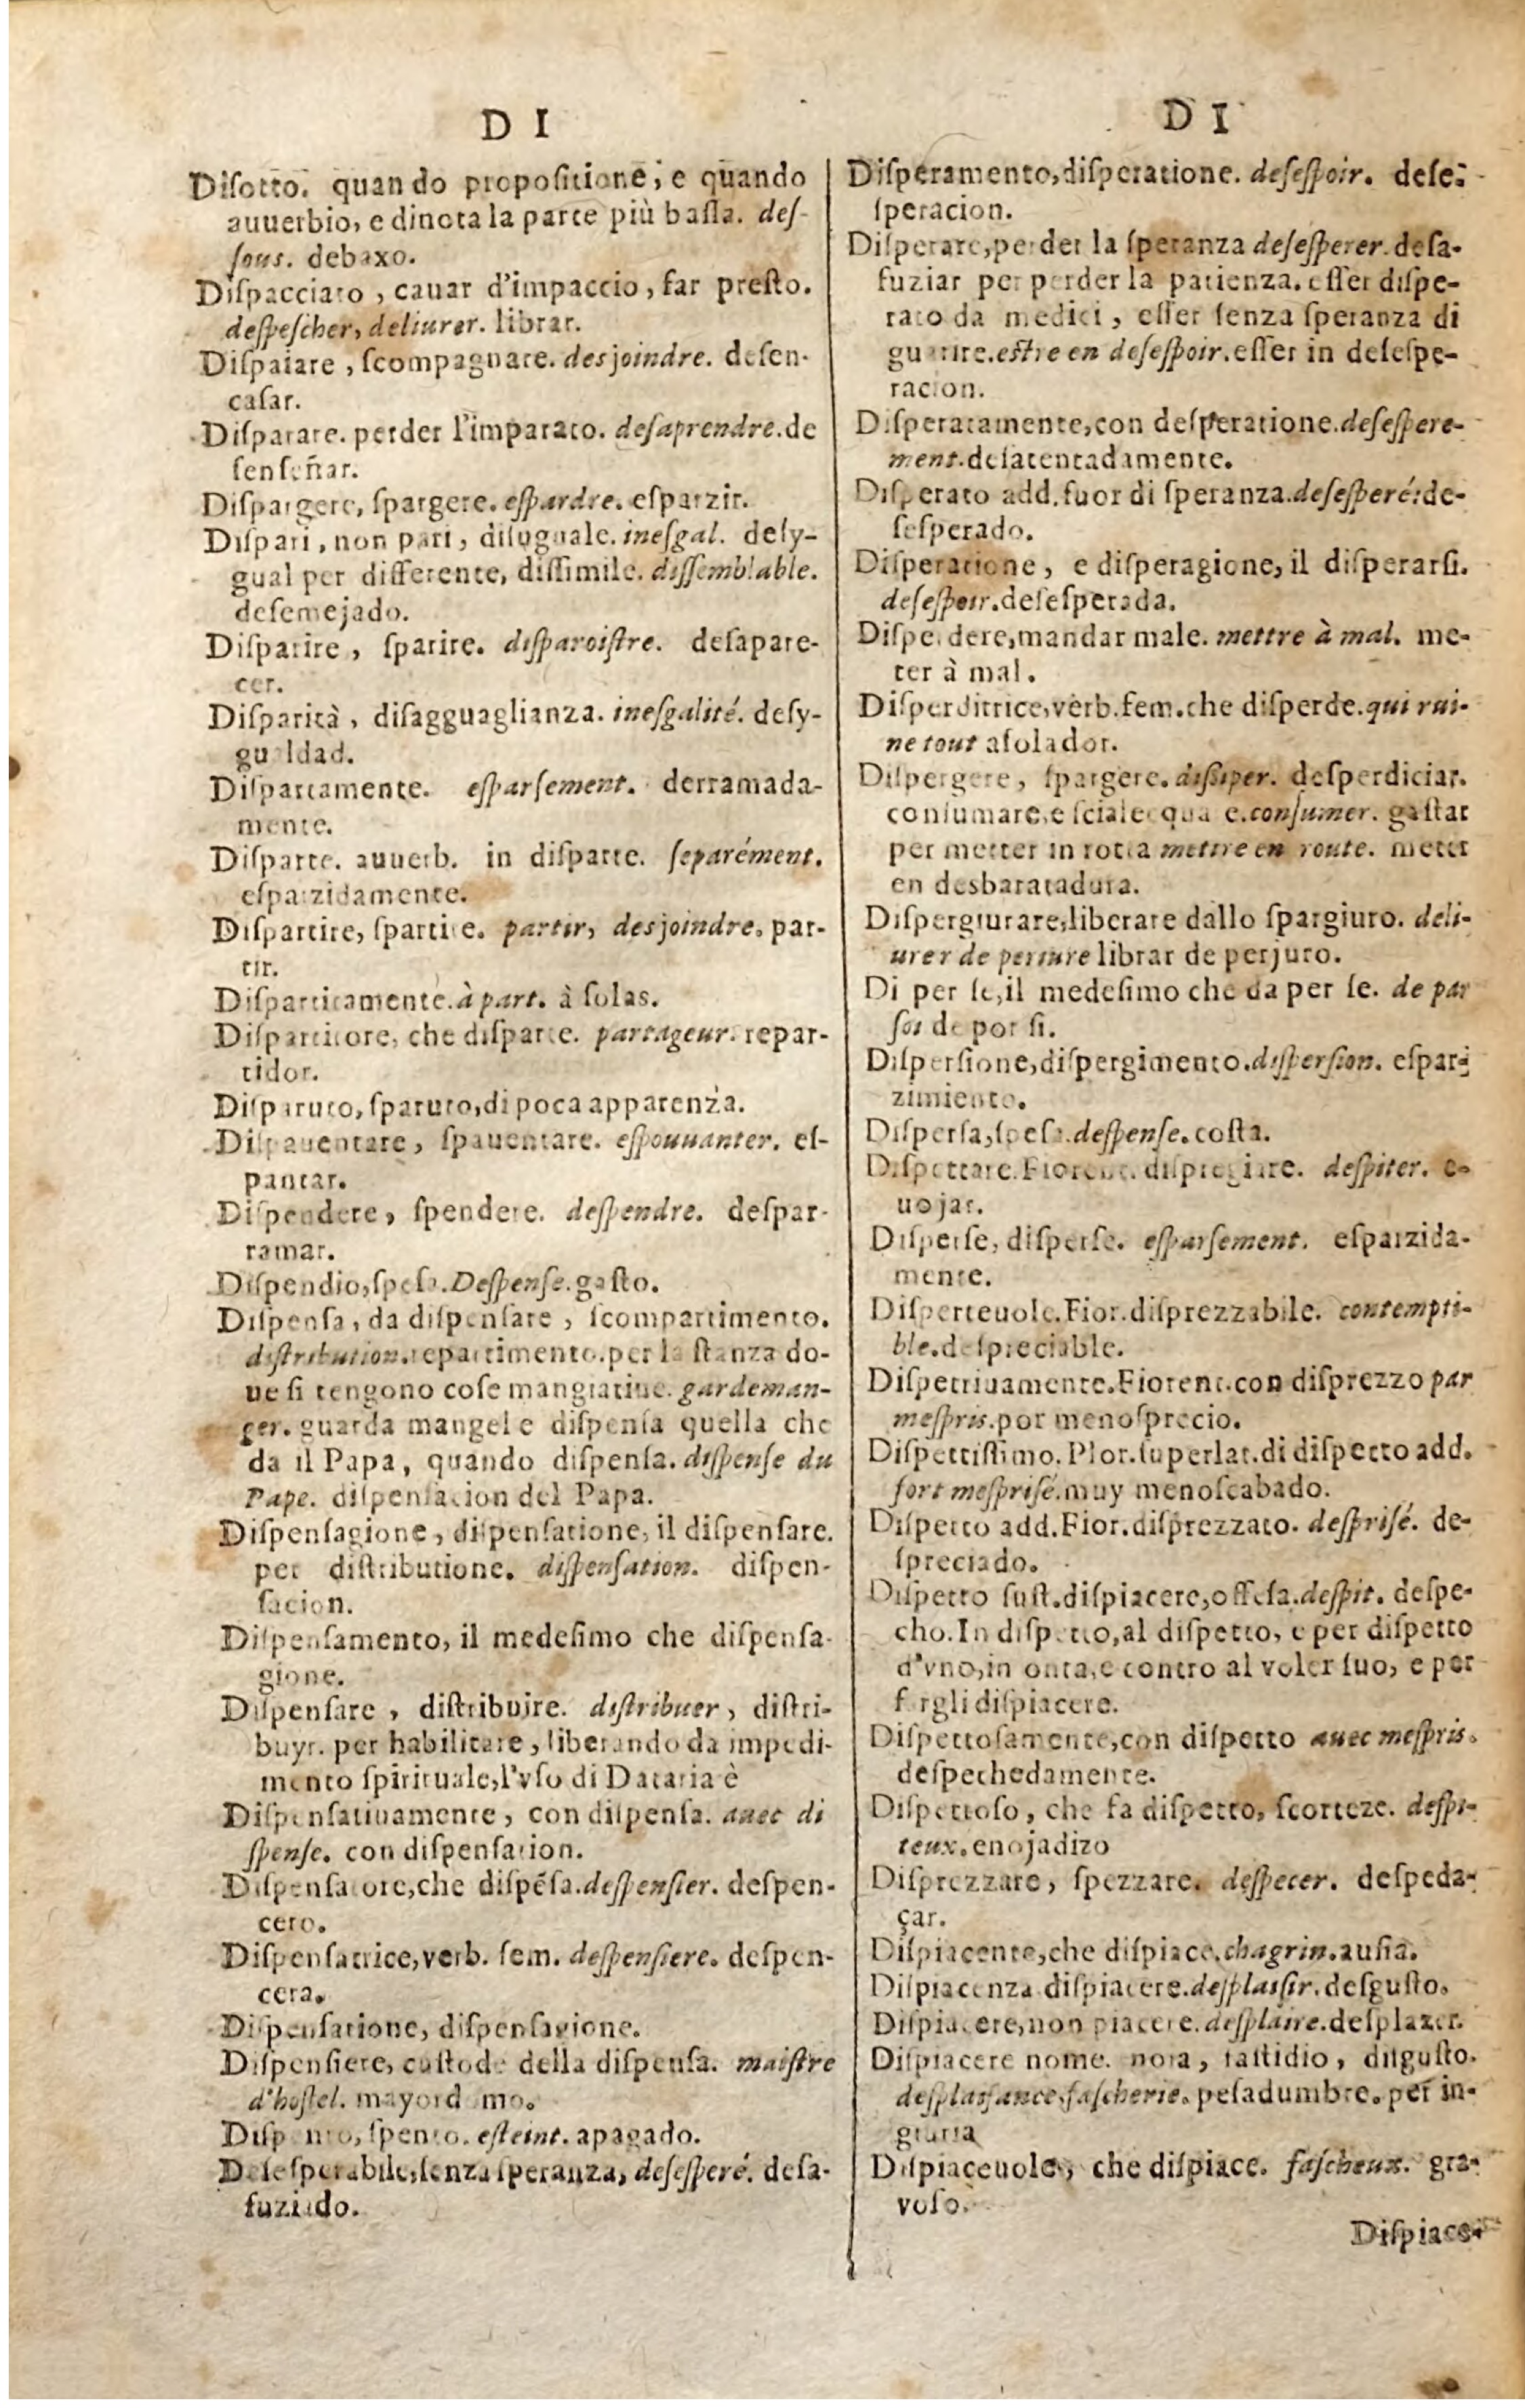 D I
Diſotto. quando propoſitione; e quando
auuerbio, e dinota la parte più baſſa. deſ-
ſous. debaxo.
Diſpacciato, cauar d'impaccio, far preſto.
deſpeſcher, deliurer. librar.
Diſpaiare, ſcompagnare. desjoindre. deſen-
caſar.
Diſparare. perder l'imparato. deſaprendre. de
ſenſeñar.
Diſpargere, ſpargere. eſpardre. eſparzir.
Diſpari, non pari, diſuguale. ineſgal. deſy-
gual per differente, diſſimile. diſſemblable.
deſemejado.
Diſparire, ſparire. diſparoiſtre. deſapare-
cer.
Diſparità, diſagguaglianza. ineſgalité. deſy-
gualdad.
Diſpartamente. eſparſement. derramada-
mente.
Diſparte. auuerb. in diſparte. ſeparément.
eſparzidamente.
Diſpartire, ſpartire. partir, desjoindre. par-
tir.
Diſpartitamente. à part. à ſolas.
Diſpartitore, che diſparte. partageur. repar-
tidor.
Diſparuto, ſparuto, di poca apparenza.
Diſpauentare, ſpauentare. eſpouuanter. eſ-
pantar.
Diſpendere, ſpendere. deſpendre. deſpar-
ramar.
Diſpendio, ſpeſa. Deſpenſe. gaſto.
Diſpenſa, da diſpenſare, ſcompartimento.
diſtribution. repartimento. per la ſtanza do-
ue ſi tengono coſe mangiatiue. gardeman-
ger. guarda mangel e diſpenſa quella che
da il Papa, quando diſpenſa. diſpenſe du
Pape. diſpenſacion del Papa.
Diſpenſagione, diſpenſatione, il diſpenſare.
per diſtributione. diſpenſation. diſpen-
ſacion.
Diſpenſamento, il medeſimo che diſpenſa-
gione.
Diſpenſare, diſtribuire. diſtribuer, diſtri-
buyr. per habilitare, liberando da impedi-
mento ſpirituale, l'vſo di Dataria è
Diſpenſatiuamente, con diſpenſa. auec di
ſpenſe. con diſpenſation.
Diſpenſatore, che diſpẽſa. deſpenſier. deſpen-
cero.
Diſpenſatrice, verb. fem. deſpenſiere. deſpen-
cera.
Diſpenſatione, diſpenſagione.
Diſpenſiere, cuſtode della diſpenſa. maiſtre
d'hoſtel. mayordomo.
Diſpento, ſpento. eſteint. apagado.
Deſeſperabile, ſenza ſperanza, deſeſperé. deſa-
fuziado.
D I
Diſperamento, diſperatione. deſeſpoir. deſe-
ſperacion.
Diſperare, perder la ſperanza deſeſperer. deſa-
fuziar per perder la patienza. eſſer diſpe-
rato da medici, eſſer ſenza ſperanza di
guarire. eſtre en deſeſpoir. eſſer in deſeſpe-
racion.
Diſperatamente, con deſperatione. deſeſpere-
ment. deſatentadamente.
Diſperato add. fuor di ſperanza. deſeſperé: de-
ſeſperado.
Diſperatione, e diſperagione, il diſperarſi.
deſeſpoir. deſeſperada.
Diſperdere, mandar male. mettre à mal. me-
ter à mal.
Diſperditrice, verb. fem. che diſperde. qui rui-
ne tout aſolador.
Diſpergere, ſpargere. diſſiper. deſperdiciar.
conſumare, e ſcialecquare. conſumer. gaſtar
per metter in rotta mettre en route. meter
en desbaratadura.
Diſpergiurare, liberare dallo ſpargiuro. deli-
urer de periure librar de perjuro.
Di per ſe, il medeſimo che da per ſe. de par
ſoi de por ſi.
Diſperſione, diſpergimento. diſperſion. eſpar-
zimiento.
Diſperſa, ſpeſa. deſpenſe. coſta.
Diſpettare. Fiorent. diſpregiare. deſpiter. e-
uojar.
Diſperſe, diſperſe. eſparſement. eſparzida-
mente.
Diſperteuole. Fior. diſprezzabile. contempti-
ble. deſpreciable.
Diſpettiuamente. Fiorent. con diſprezzo par
meſpris. por menoſprecio.
Diſpettiſſimo. Plor. ſuperlat. di diſpetto add.
fort meſpriſé. muy menoſcabado.
Diſpetto add. Fior. diſprezzato. deſpriſé. de-
ſpreciado.
Diſpetto ſuſt. diſpiacere, offeſa. deſpit. deſpe-
cho. In diſpetto, al diſpetto, e per diſpetto
d'vno, in onta, e contro al voler ſuo, e per
fargli diſpiacere.
Diſpettoſamente, con diſpetto auec meſpris.
deſpechedamente.
Diſpettoſo, che fa diſpetto, ſcorteze. deſpi-
teux. enojadizo
Diſprezzare, ſpezzare. deſpecer. deſpeda-
çar.
Diſpiacente, che diſpiace. chagrin. auſia.
Diſpiacenza diſpiacere. deſplaiſir. deſguſto.
Diſpiacere, non piacere. deſplaire. deſplazer.
Diſpiacere nome. noia, faſtidio, diſguſto.
deſplaiſance, faſcherie. peſadumbre. per in-
giuria
Diſpiaceuole, che diſpiace. faſcheux. gra-
voſo.
Diſpiace-